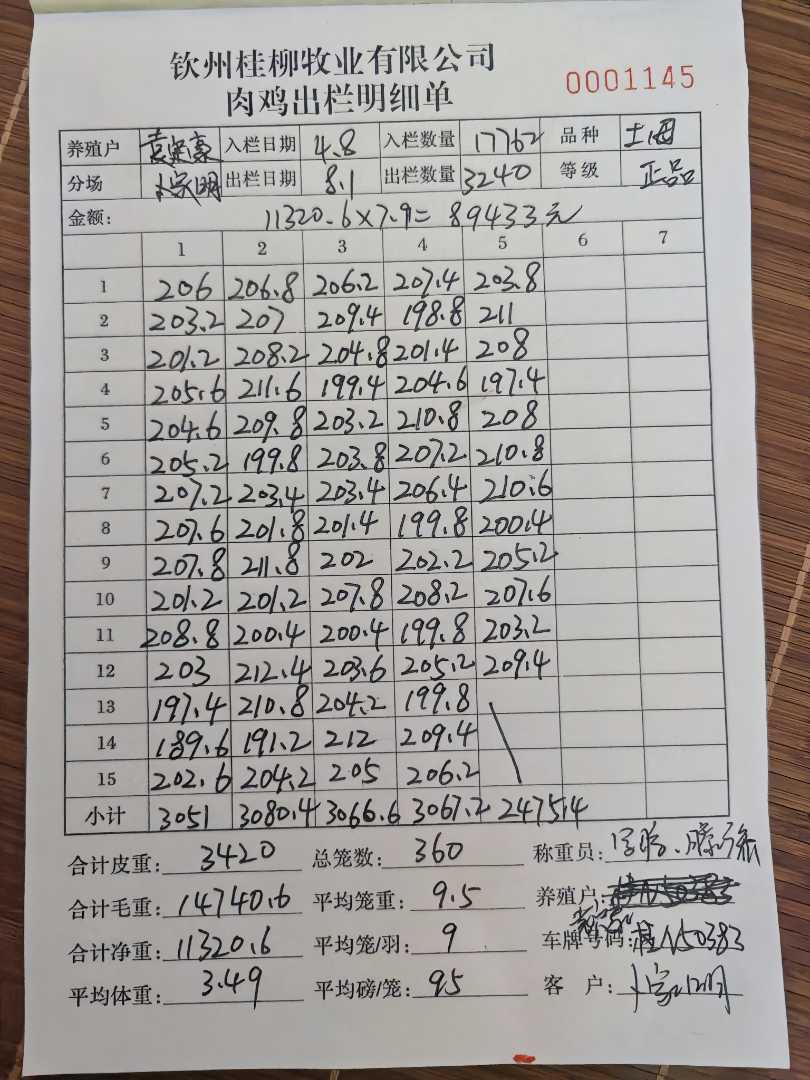 钦州桂柳牧业有限公司
0001145
肉鸡出栏明细单
养殖户 入栏日期 4.8 入栏数量 17762 品种 土
分场 卜家明 出栏日期 8.1 出栏数量 3240 等级 正品
金额: 11320.6×7.9= 89433元
1 2 3 4 5 6 7
1 206 206.8 206.2 207.4 203.8
2 203.2 207 209.4 198.8 211
3 201.2 208.2 204.8 201.4 208
4 205.6 211.6 199.4 204.6 197.4
5 204.6 209.8 203.2 210.8 208
6 205.2 199.8 203.8 207.2 210.8
7 207.2 203.4 203.4 206.4 210.6
8 207.6 201.8 201.4 199.8 200.4
9 207.8 211.8 202 202.2 205.2
10 201.2 201.2 207.8 208.2 207.6
11 208.8 200.4 200.4 199.8 203.2
12 203 212.4 203.6 205.2 209.4
13 197.4 210.8 204.2 199.8
14 189.6 191.2 212 209.4
15 202.6 204.2 205 206.2
小计 3051 3080.4 3066.6 3067.2 2475.4
合计皮重: 3420 总笼数: 360 称重员:
合计毛重: 14740.6 平均笼重: 9.5 养殖户:
合计净重: 11320.6 平均笼/羽: 9 车牌号码: 桂N50383
平均体重: 3.49 平均磅/笼: 95 客 户: 卜家明